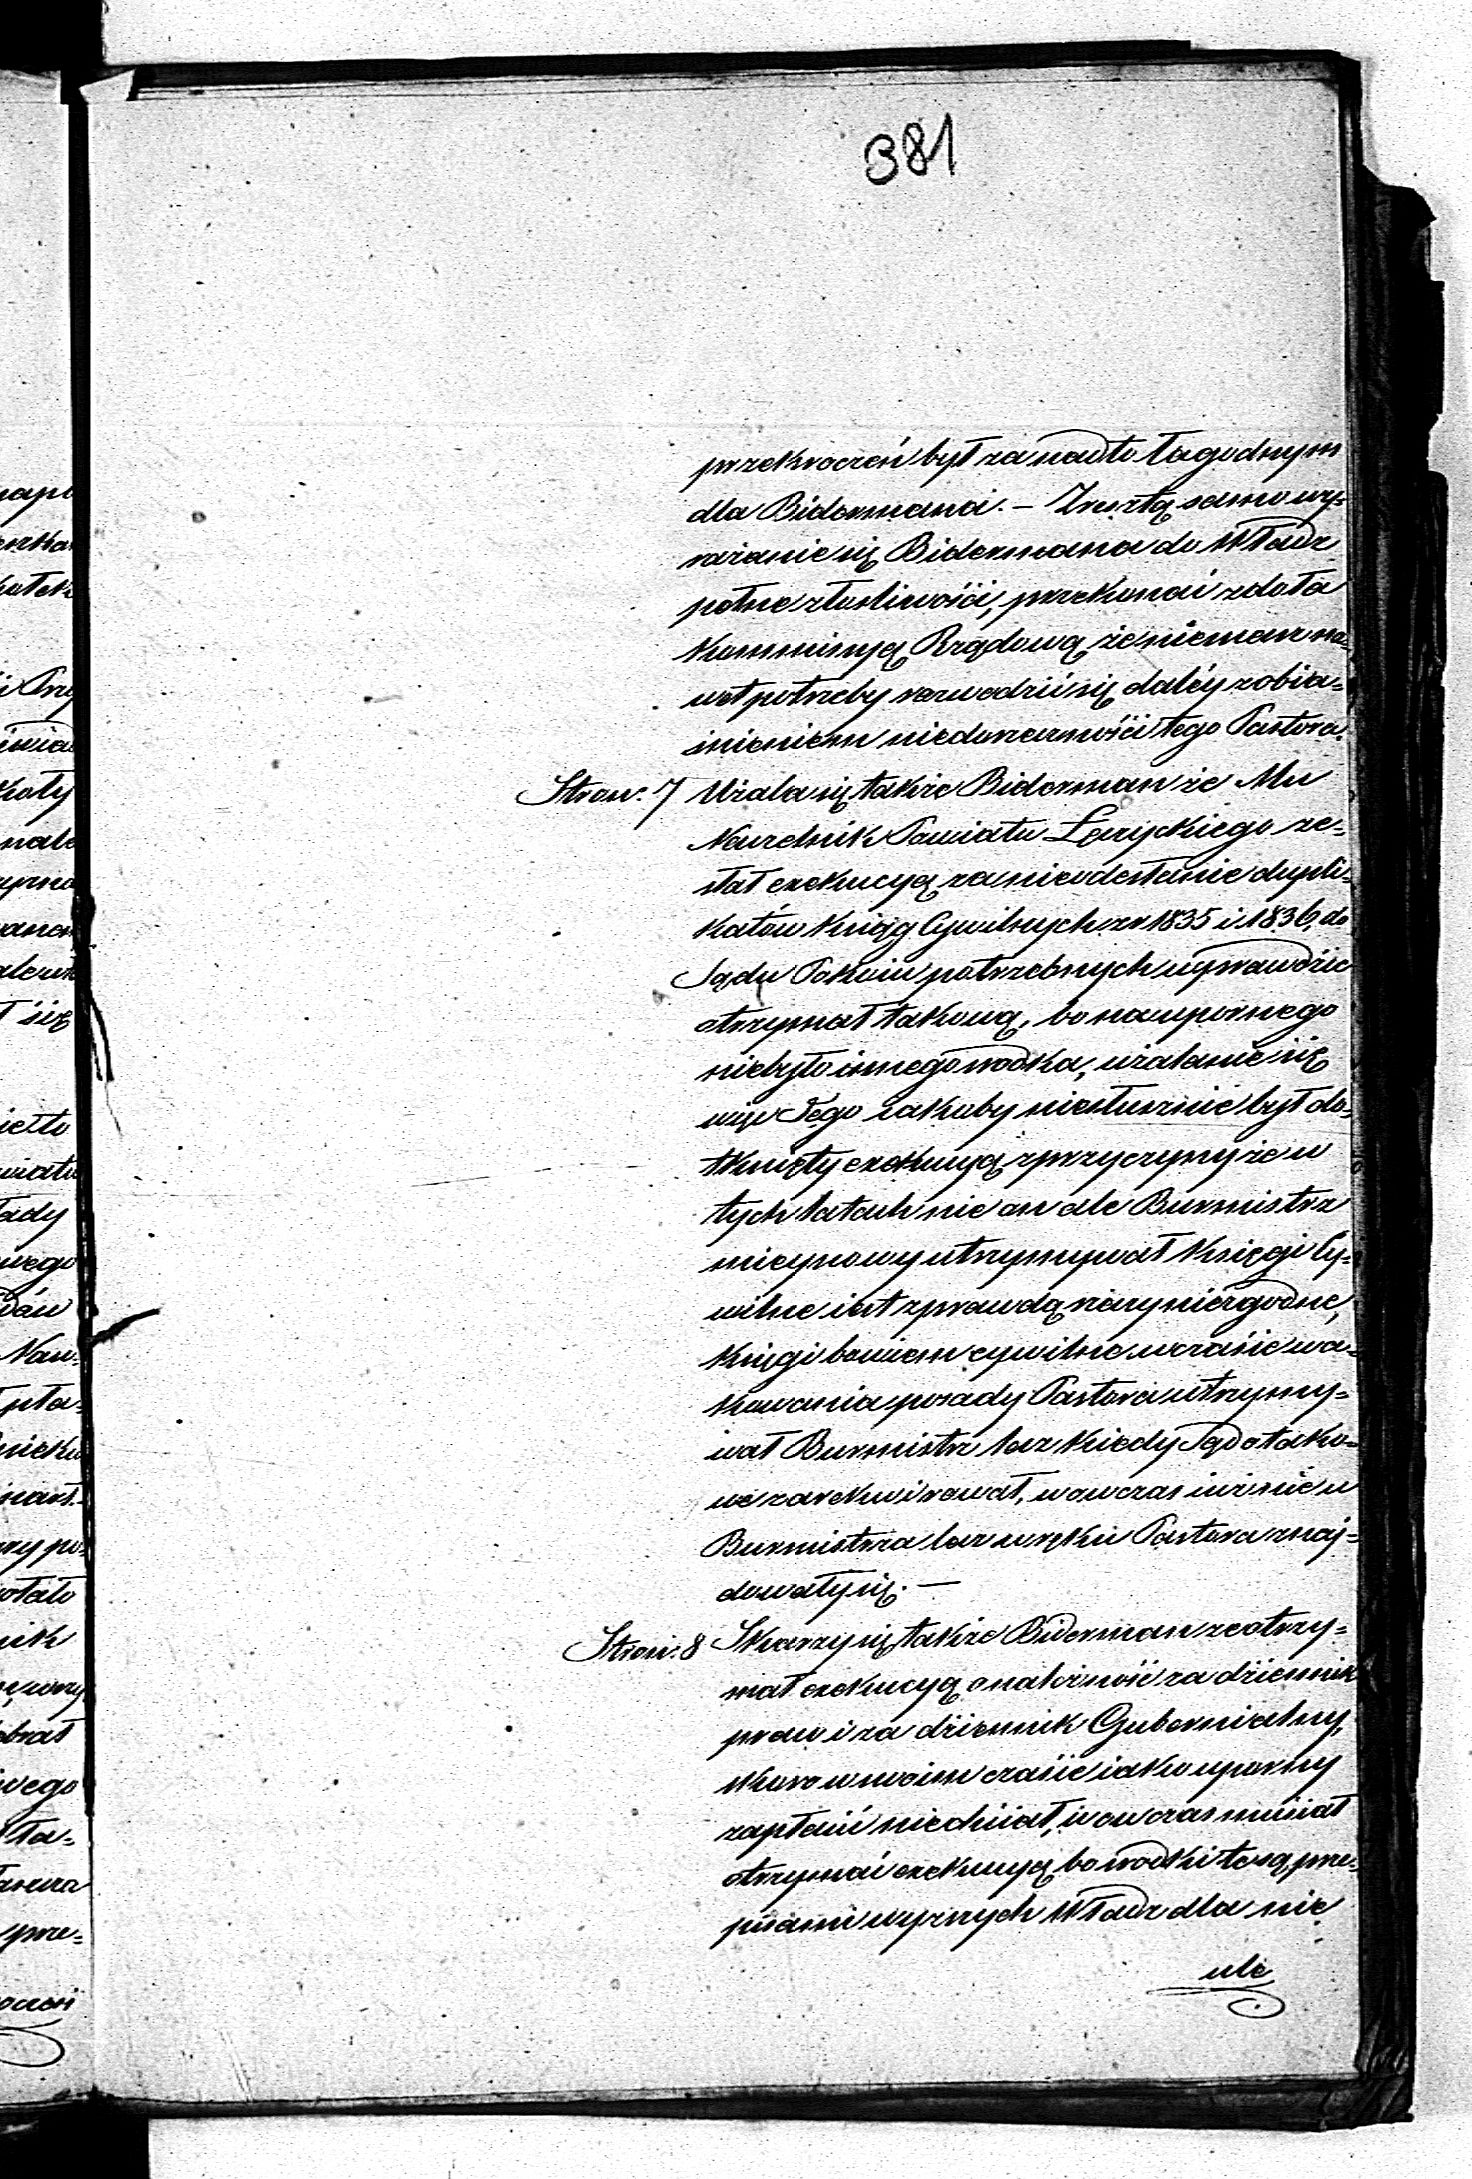 381
przekroczeń był za nadto łagodnym
dla Bidermana. – Zresztą samo wy-
rażanie się Bidermana do Władz
pełne złośliwości, przekonać zdoła
Kommissyą Rządową że niemasz na-
wet potrzeby rozwodzić się daléy z obia-
śnieniem niedorzeczności tego Pastora.
Stron. 7 Użala się także Biderman że Mu
Naczelnik Powiatu Łęczyckiego ze-
słał exekucyą za nieodesłanie dupli-
katów Ksiąg Cywilnych za 1835 i 1836, do
Sądu Pokoiu potrzebnych wprawdzie
otrzymał takową, bo na upornego
niebyło innego środka, użalanie się
więc Tego iakoby niesłusznie był do-
tknięty exekucyą z przyczyny że w
tych latach nie on ale Burmistrz
mieyscowy utrzymywał Księgi Cy-
wilne iest z prawdą rzeczy niezgodne,
Księgi bowiem cywilne w czasie wa-
kowania posady Pastora utrzymy-
wał Burmistrz lecz kiedy Sąd o tako-
we zarekwirował, wowczas iuż nie u
Burmistrza lecz w ręku Pastora znaj-
dowały się. –
Stron. 8 Skarży się także Biderman ze otrzy-
mał exekucyą o należność za dziennik
praw i za dziennik Gubernialny,
skoro w swoim czasie iako uporny
zapłacić niechciał, wowczas musiał
otrzymać exekucyą bo środki te są prze-
pisami wyższych Władz dla nie
ule